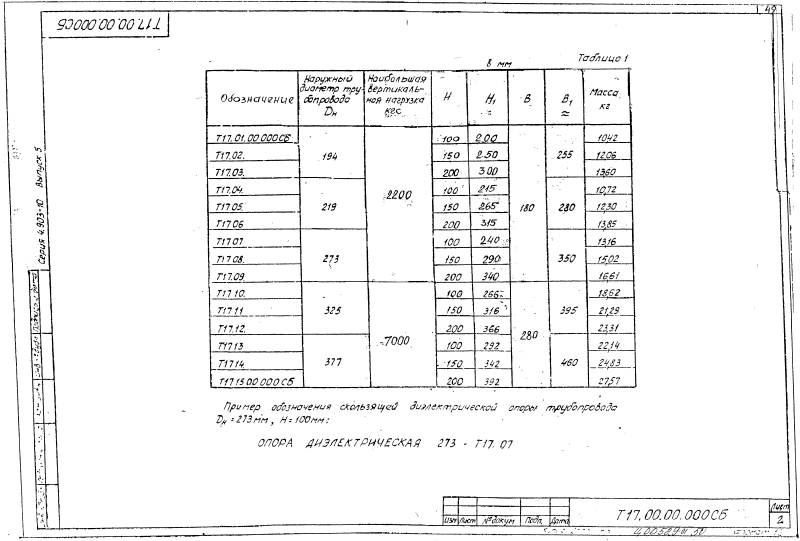 Т17.00.00.000СБ
49
Серия 4.903-10 Выпуск 5
в мм
Таблица 1
Обозначение | Наружный диаметр трубопровода Dн | Наибольшая вертикальная нагрузка кгс | H | H1 ≈ | B | B1 ≈ | Масса кг
Т17.01.00.000СБ | 194 | 2200 | 100 | 200 | 180 | 255 | 10,42
Т17.02. | 150 | 250 | 12,06
Т17.03. | 200 | 300 | 13,60
Т17.04. | 219 | 100 | 215 | 280 | 10,72
Т17.05. | 150 | 265 | 12,30
Т17.06 | 200 | 315 | 13,85
Т17.07 | 273 | 100 | 240 | 350 | 13,16
Т17.08. | 150 | 290 | 15,02
Т17.09. | 200 | 340 | 16,61
Т17.10. | 325 | 7000 | 100 | 266 | 280 | 395 | 18,62
Т17.11 | 150 | 316 | 21,29
Т17.12. | 200 | 366 | 23,31
Т17.13 | 377 | 100 | 292 | 460 | 22,14
Т17.14. | 150 | 342 | 24,83
Т17.15.00.000СБ | 200 | 392 | 27,57
Пример обозначения скользящей диэлектрической опоры трубопровода
Dн = 273 мм, H = 100 мм:
ОПОРА ДИЭЛЕКТРИЧЕСКАЯ 273 - Т17.07
Изм Лист № докум Подп. Дата
Т17.00.00.000СБ
Лист
2